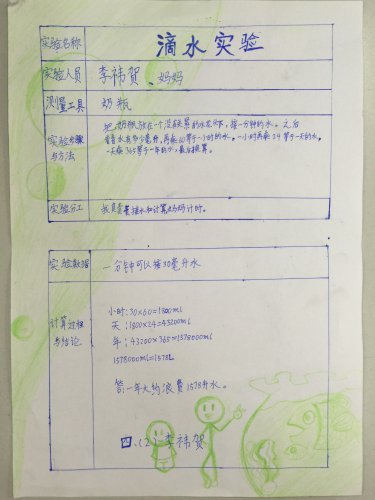 实验名称 滴水实验
实验人员 李祎贺、妈妈
测量工具 奶瓶
实验步骤与方法
把奶瓶放在一个没关紧的水龙头下，接一分钟的水。之后
看看水有多少毫升，再乘60等于一小时的水。一小时再乘24等于一天的水。
一天乘365等于一年的水，最后换算。
实验分工 我负责接水和计算妈妈计时。
实验数据 一分钟可以接30毫升水
计算过程与结论
小时：30×60=1800ml
天：1800×24=43200ml
年：43200×365=1578000ml
1578000ml=1578L
答：一年大约浪费1578升水。
四.（2） 李祎贺